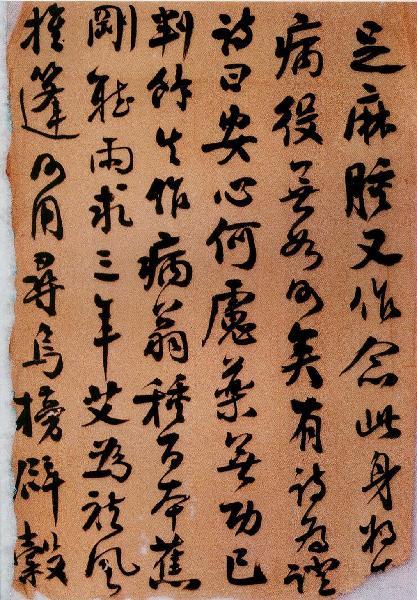 足麻腫又作念此身
病役無如何矣有詩為證
詩曰安心何處藥無功已
判餘生作病翁種百本蕉
剛聽雨求三年艾為祛風
推篷何用尋烏榜辟穀